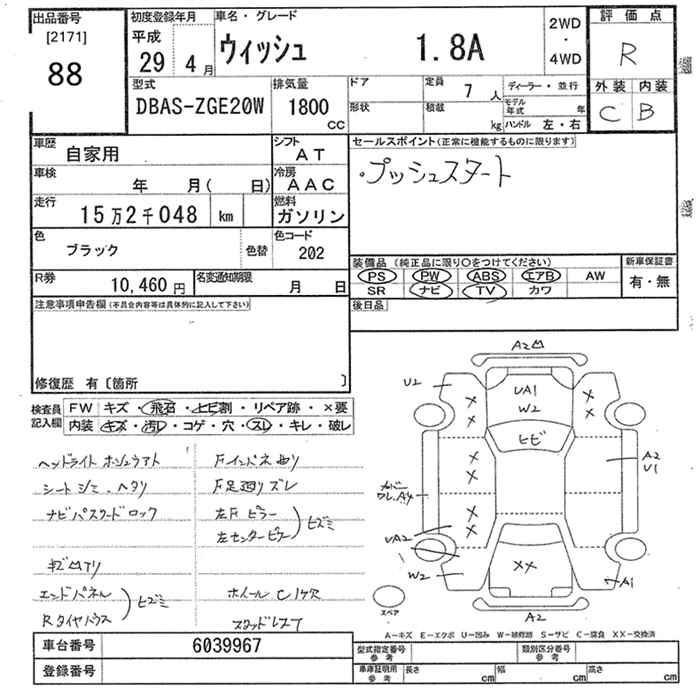 出品番号
[2171]
88
初度登録年月
平成
29 4月
車名・グレード
ウィッシュ 1.8A
2WD
・
4WD
評価点
R
外装 内装
C B
型式
DBAS-ZGE20W
排気量
1800
CC
ドア
形状
定員 7 人
積載 kg
ディーラー・並行
モデル年式 年
ハンドル 左・右
車歴
自家用
シフト
AT
車検
年 月( 日)
冷房
AAC
走行
15万2千048 km
燃料
ガソリン
色
ブラック
色替
色コード
202
R券
10,460円
名変通知期限
月 日
セールスポイント(正常に機能するものに限ります)
・プッシュスタート
装備品(純正品に限り〇をつけてください)
PS PW ABS エアB AW
SR ナビ TV カワ
新車保証書
有・無
後日品
注意事項申告欄(不具合内容等は具体的に記入して下さい)
修復歴 有〔箇所 〕
検査員記入欄
FW キズ・飛石・ヒビ割・リペア跡・×要
内装 キズ・汚レ・コゲ・穴・スレ・キレ・破レ
シート シミ、ヘタリ
ナビパスワードロック
エンドパネル
Rタイヤハウス
ヒズミ
Fインパネ凹リ
F足廻リズレ
左Fピラー
左センターピラー
ヒズミ
ホイール
スタッドレス
A2
U2
UA1
W2
ヒビ
A2
U1
UA2
W2
A1
A2
スペア
A-キズ E-エクボ U-凹み W-補修跡 S-サビ C-腐食 XX-交換済
車台番号 6039967
登録番号
型式指定番号
参考
類別区分番号
参考
車庫証明用
参考
長さ cm 幅 cm 高さ cm